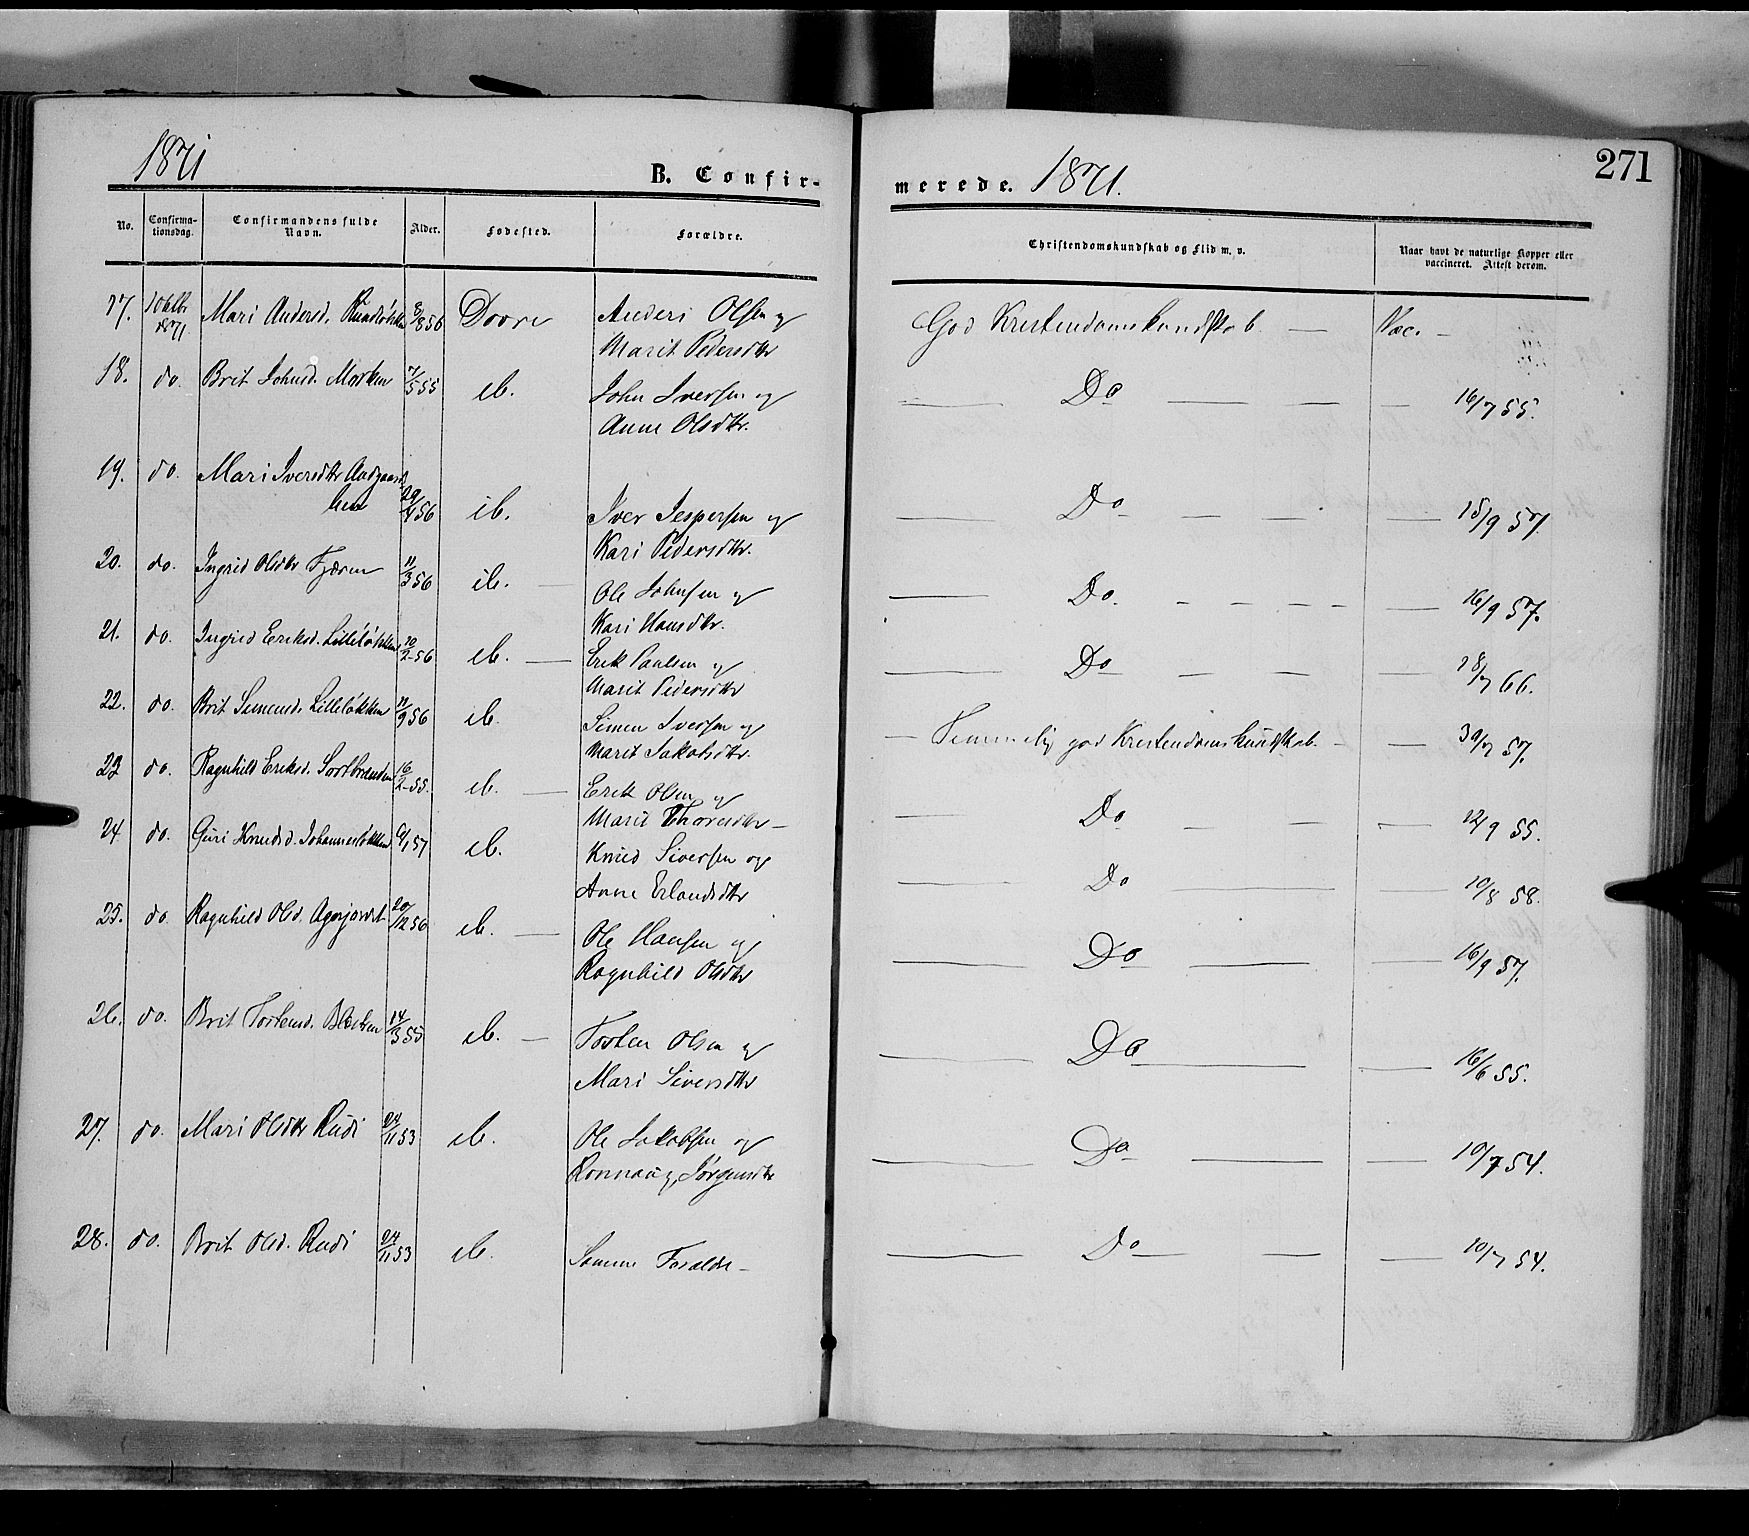 1871
B. Confir-
merede. 1871.
271
No.
Confirma-
tionsdag.
Confirmandens fulde
Navn.
Alder.
Fødested.
Forældre.
Christendomskundskab og Flid m. v.
Naar havt de naturlige Kopper eller
vaccineret. Attest derom.
17. 1871 Mari Andersd. 8/8 56 Dovre Anders Olsen og God Kristendomskundskab. — Vac. —
Marit Pedersdtr
18. do. Brit Johnsd. Morken 7/5 55 ib. John Iversen og — Do — — — 16/7 55.
Anne Olsdtr.
19. do. Mari Iversdtr
29/4 56 ib. Iver Jespersen og — Do — — — 15/9 57.
Kari Pedersdtr.
20. do. Ingrid Olsdtr 11/3 56 ib. — Ole Johnsen og — Do. — — — — — 16/9 57.
Kari Hansdtr.
21. do. Ingrid Eriksd. Lilleløkken 20/2 56 ib. — Erik Paulsen og — Do — — — — 18/7 66.
Marit Pedersdtr
22. do. Brit Simensd. Lilleløkken 11/9 56 ib. Simen Iversen og — Temmelig god Kristendomskundskab. — — 30/7 57.
Marit Jakobsdtr.
23 do. Ragnhild Eriksd. 16/2 55. ib. — Erik Olsen og — Do — — — 12/9 55.
Marit Thoresdtr —
24 do. Guri Knudsd. Johannesløkken 9/1 57 ib. Knud Siversen og — Do — — 10/8 58.
Anne Erlandsdtr
25. do. Ragnhild Olsd. 20/12 56 ib. — Ole Hansen og — Do — — 16/9 57.
Ragnhild Olsdtr
26. do. Brit Tostensd. 14/3 55 ib. — Tosten Olsen og — Do — — 16/6 55.
Mari Siversdtr
27. do. Mari Olsdtr Rudi 24/11 53 ib. Ole Jakobsen og — Do — — — 10/7 54.
Ronnaug Jørgensdtr
28. do. Brit Olsd. Rudi 24/11 53 ib. Samme Foraldre — — Do — — — — 10/7 54.